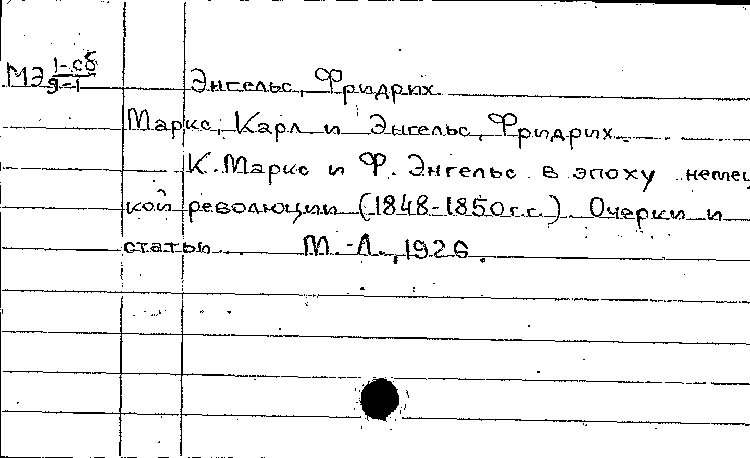 МЭ 1-сб
9-1
Энгельс, Фридрих
Маркс, Карл и Энгельс, Фридрих.
К. Маркс и Ф. Энгельс в эпоху немец
кой революции (1848-1850 г.г.) Очерки и
статьи. М.-Л., 1926.